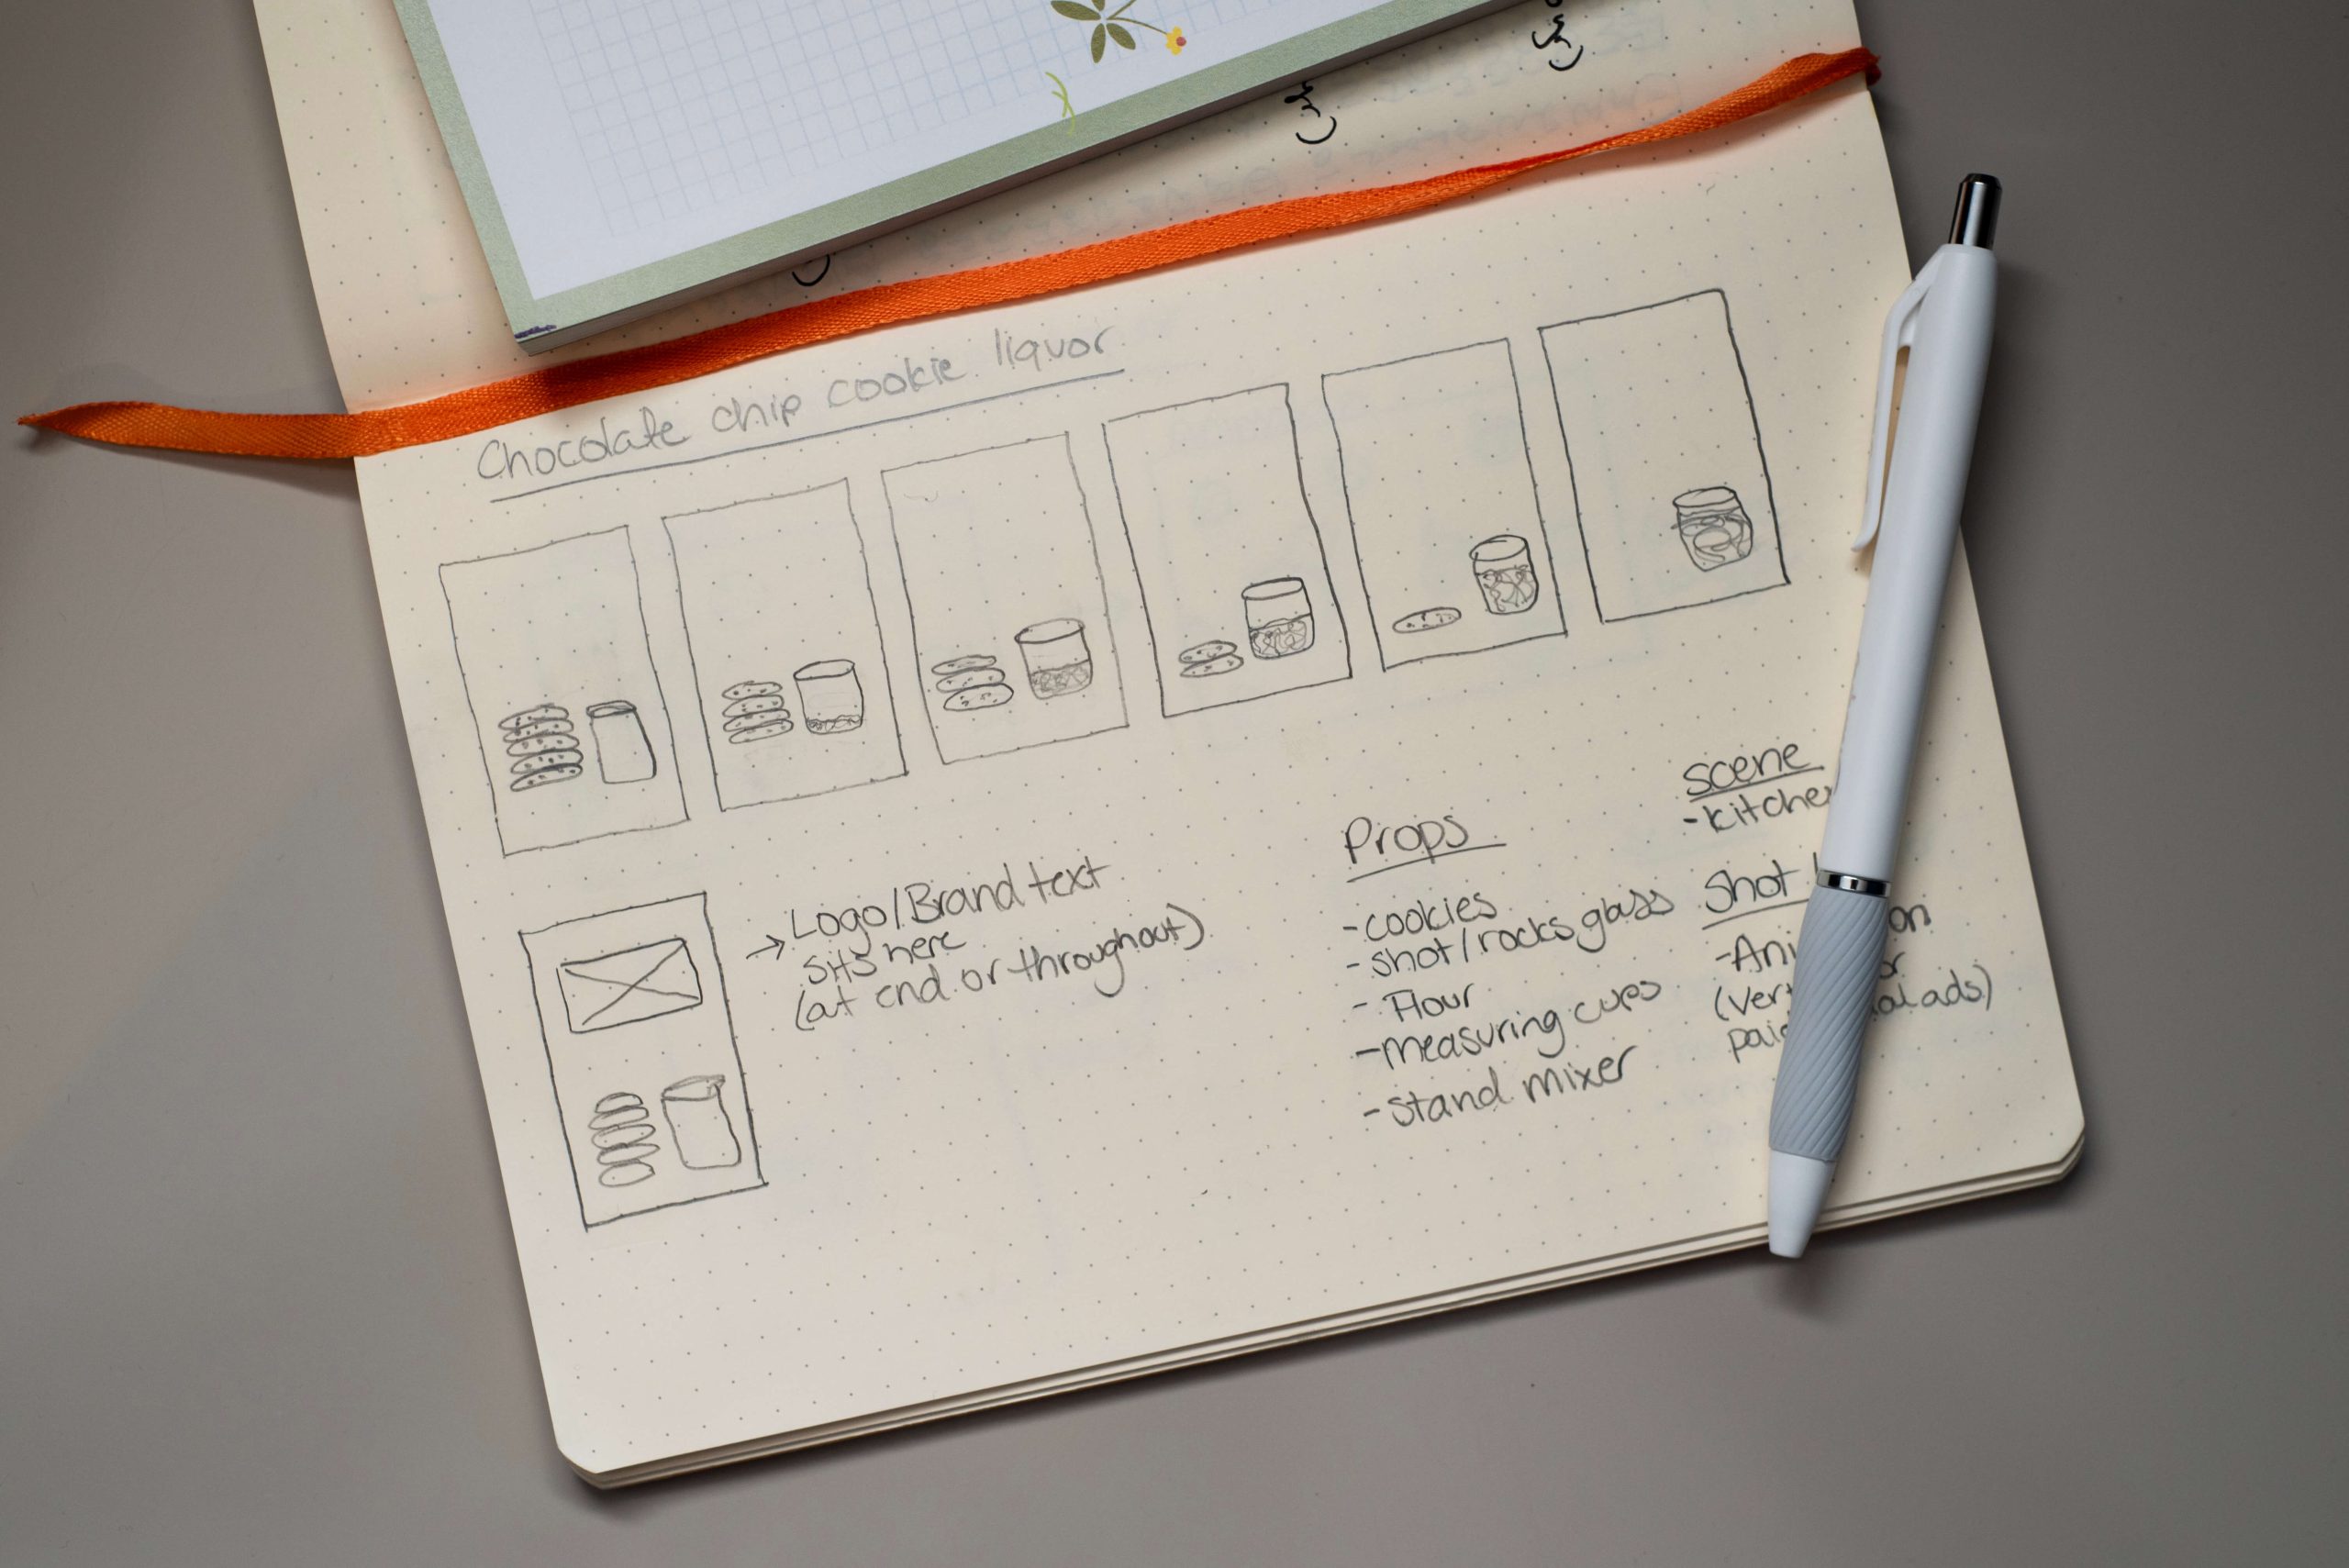 Chocolate chip cookie liquor
→ Logo/Brand text
sits here
(at end or throughout)
Props
- cookies
- shot/rocks glass
- Flour
- measuring cups
- stand mixer
scene
- kitche
Shot